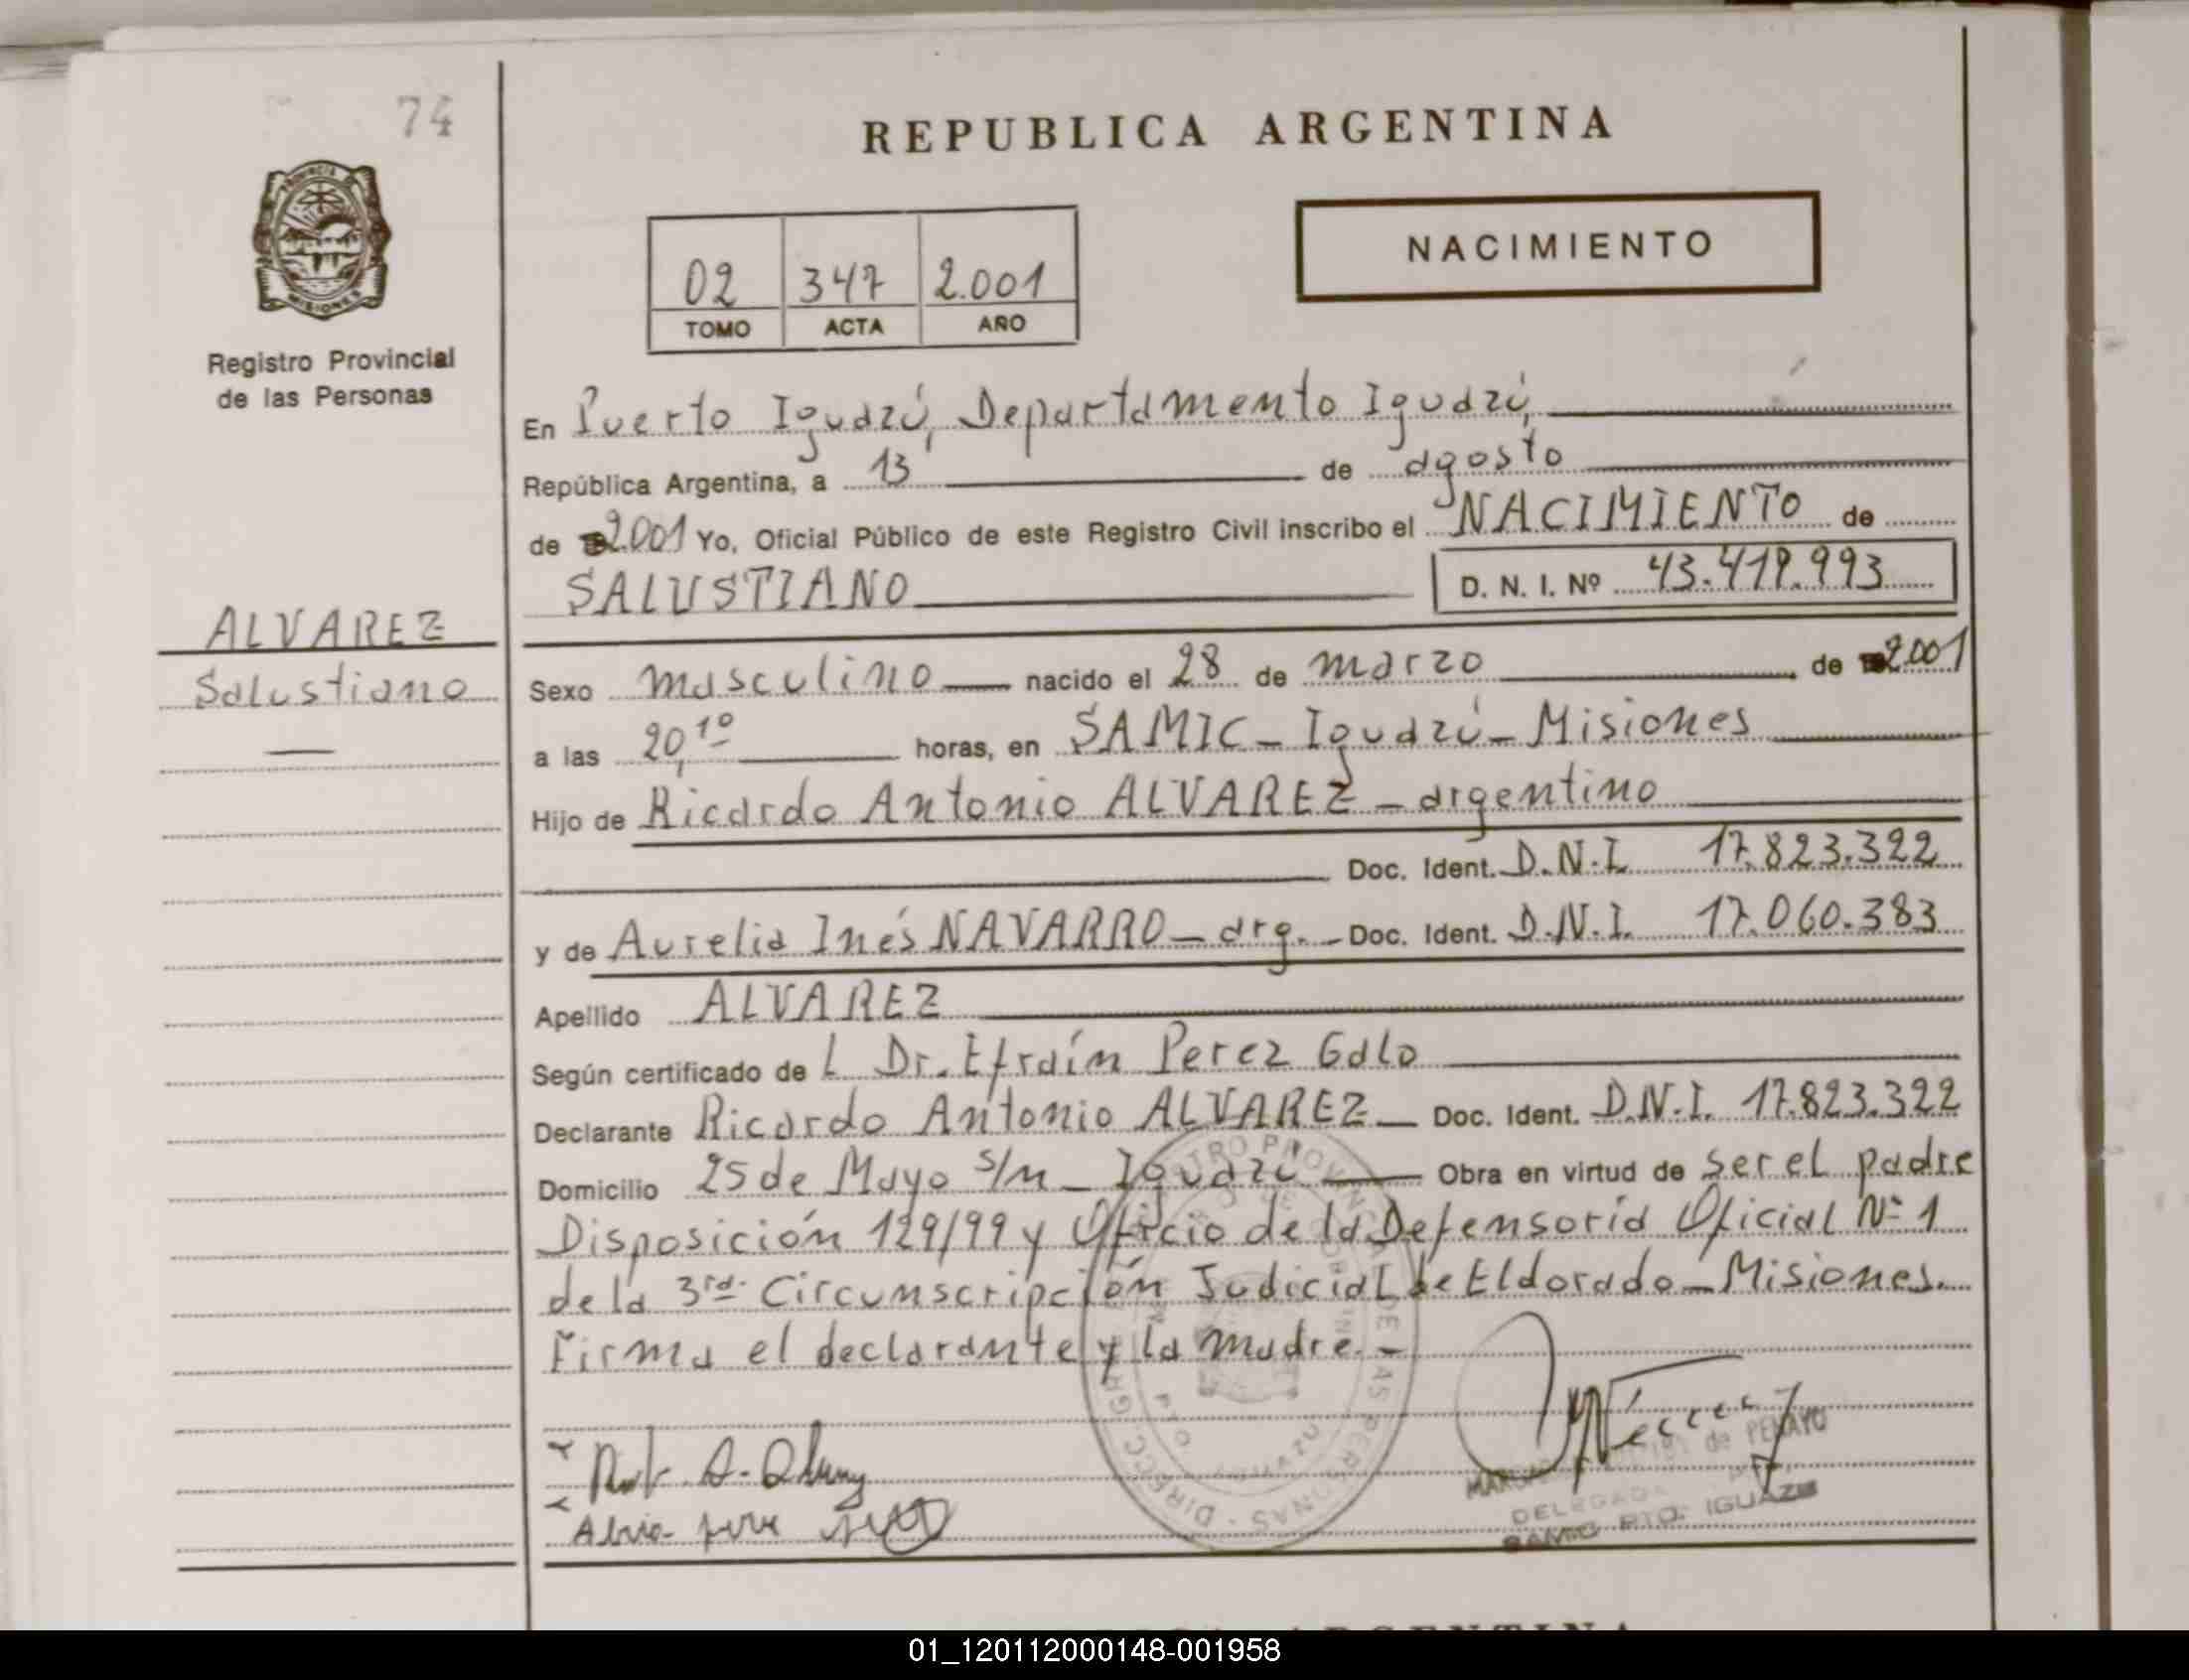 74
REPUBLICA ARGENTINA
PROVINCIA DE
MISIONES
NACIMIENTO
02 347 2.001
TOMO ACTA AÑO
Registro Provincial
de las Personas
En Puerto Iguazú, Departamento Iguazú,
República Argentina, a 13 de agosto
de 2.001 Yo, Oficial Público de este Registro Civil inscribo el NACIMIENTO de
SALUSTIANO D. N. I. Nº 43.419.993
ALVAREZ
Salustiano
Sexo masculino nacido el 28 de marzo de 2.001
a las 20,10 horas, en SAMIC - Iguazú - Misiones
Hijo de Ricardo Antonio ALVAREZ - argentino
Doc. Ident. D.N.I. 17.823.322
y de Aurelia Inés NAVARRO - arg. - Doc. Ident. D.N.I. 17.060.383
Apellido ALVAREZ
Según certificado de l Dr. Efraín Perez Galo
Declarante Ricardo Antonio ALVAREZ - Doc. Ident. D.N.I. 17.823.322
Domicilio 25 de Mayo s/n - Iguazú - Obra en virtud de ser el padre
Disposición 129/99 y Oficio de la Defensoría Oficial Nº 1
de la 3ra. Circunscripción Judicial de Eldorado - Misiones.
Firma el declarante y la madre. -
de PENAYO
DELEGADA
SAMIC PTO. IGUAZU
ARGENTINA
01_120112000148-001958